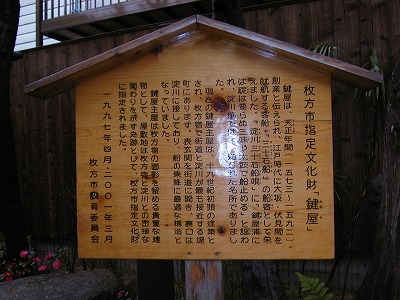 枚方市指定文化財「鍵屋」
鍵屋は、天正年間(一五七三〜一五九二)
創業と伝えられ、江戸時代に大坂・伏見間を
就航する客船「三十石船」の船宿として栄
えました。「淀川三十石船唄」に「鍵屋浦に
は碇は要らぬ三味や太鼓で船止める」と謡わ
れ、淀川筋では知られた名所でありまし
た。
現在の鍵屋主屋は、十九世紀初頭の建築と
され、枚方宿で街道と淀川が最も接近する堤
町にあります。表玄関を街道に開き、裏口は
淀川に接しており、船の乗降に最適な構造と
なっていました。
鍵屋主屋は枚方宿の面影を留める貴重な建
物として、屋敷地は枚方宿と淀川との密接な
関わりを示す史跡として、枚方市指定文化財
に指定されました。
一九九七年四月・二〇〇一年三月
枚方市教育委員会